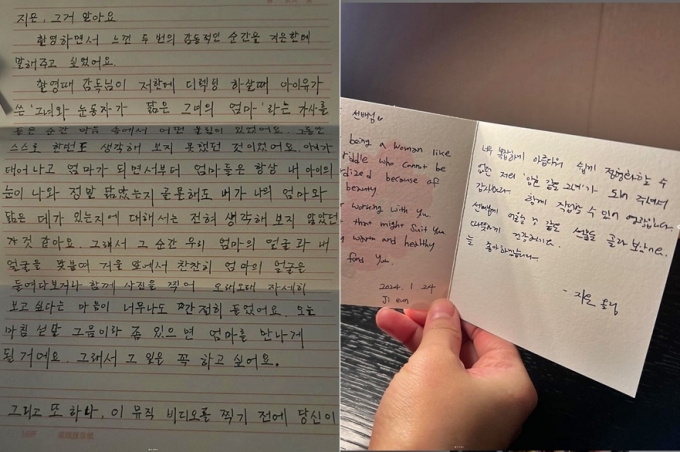 지은, 그거 알아요
촬영하면서 느낀 두 번의 감동적인 순간을 지은한테
말해주고 싶었어요.
촬영때 감독님이 저한테 디렉팅 하실때 아이유가
쓴 '그녀와 눈동자가 닮은 그녀의 엄마'라는 가사를
듣는 순간 마음 속에서 어떤 울림이 있었어요. 그동안
스스로 한번도 생각해 보지 못했던 것이었어요. 아이가
태어나고 엄마가 되면서부터 엄마들은 항상 내 아이의
눈이 나와 정말 닮았는지 골몰해도 내가 나의 엄마와
닮은 데가 있는지에 대해서는 전혀 생각해 보지 않았던
것 같아요. 그래서 그 순간 우리 엄마의 얼굴과 내
얼굴을 맞붙여 거울 앞에서 찬찬히 엄마의 얼굴은
들여다보거나 함께 사진을 찍어 오래오래 자세히
보고 싶다는 마음이 너무나도 간절히 들었어요. 오늘
마침 섣달 그믐이라 좀 있으면 엄마를 만나게
될 거예요. 그래서 그 일은 꼭 하고 싶어요.
그리고 또 하나, 이 뮤직 비디오를 찍기 전에 당신이
선배님
being a woman like
riddle who cannot be
dized because of
beauty
working with you
thing that might suit you
warm and healthy
find you
2024. 1. 24
Ji eun
너무 복잡하게 아름다워 쉽게 정형화할 수
없는 저의 '않은 그녀'가 되어 주셔서
감사해요. 함께 작업할 수 있어 영광입니다.
선배님께 어울릴 것 같은 선물을 골라 보았는데,
따뜻하게 건강하시길.
늘 좋아하겠습니다
- 지은 올림